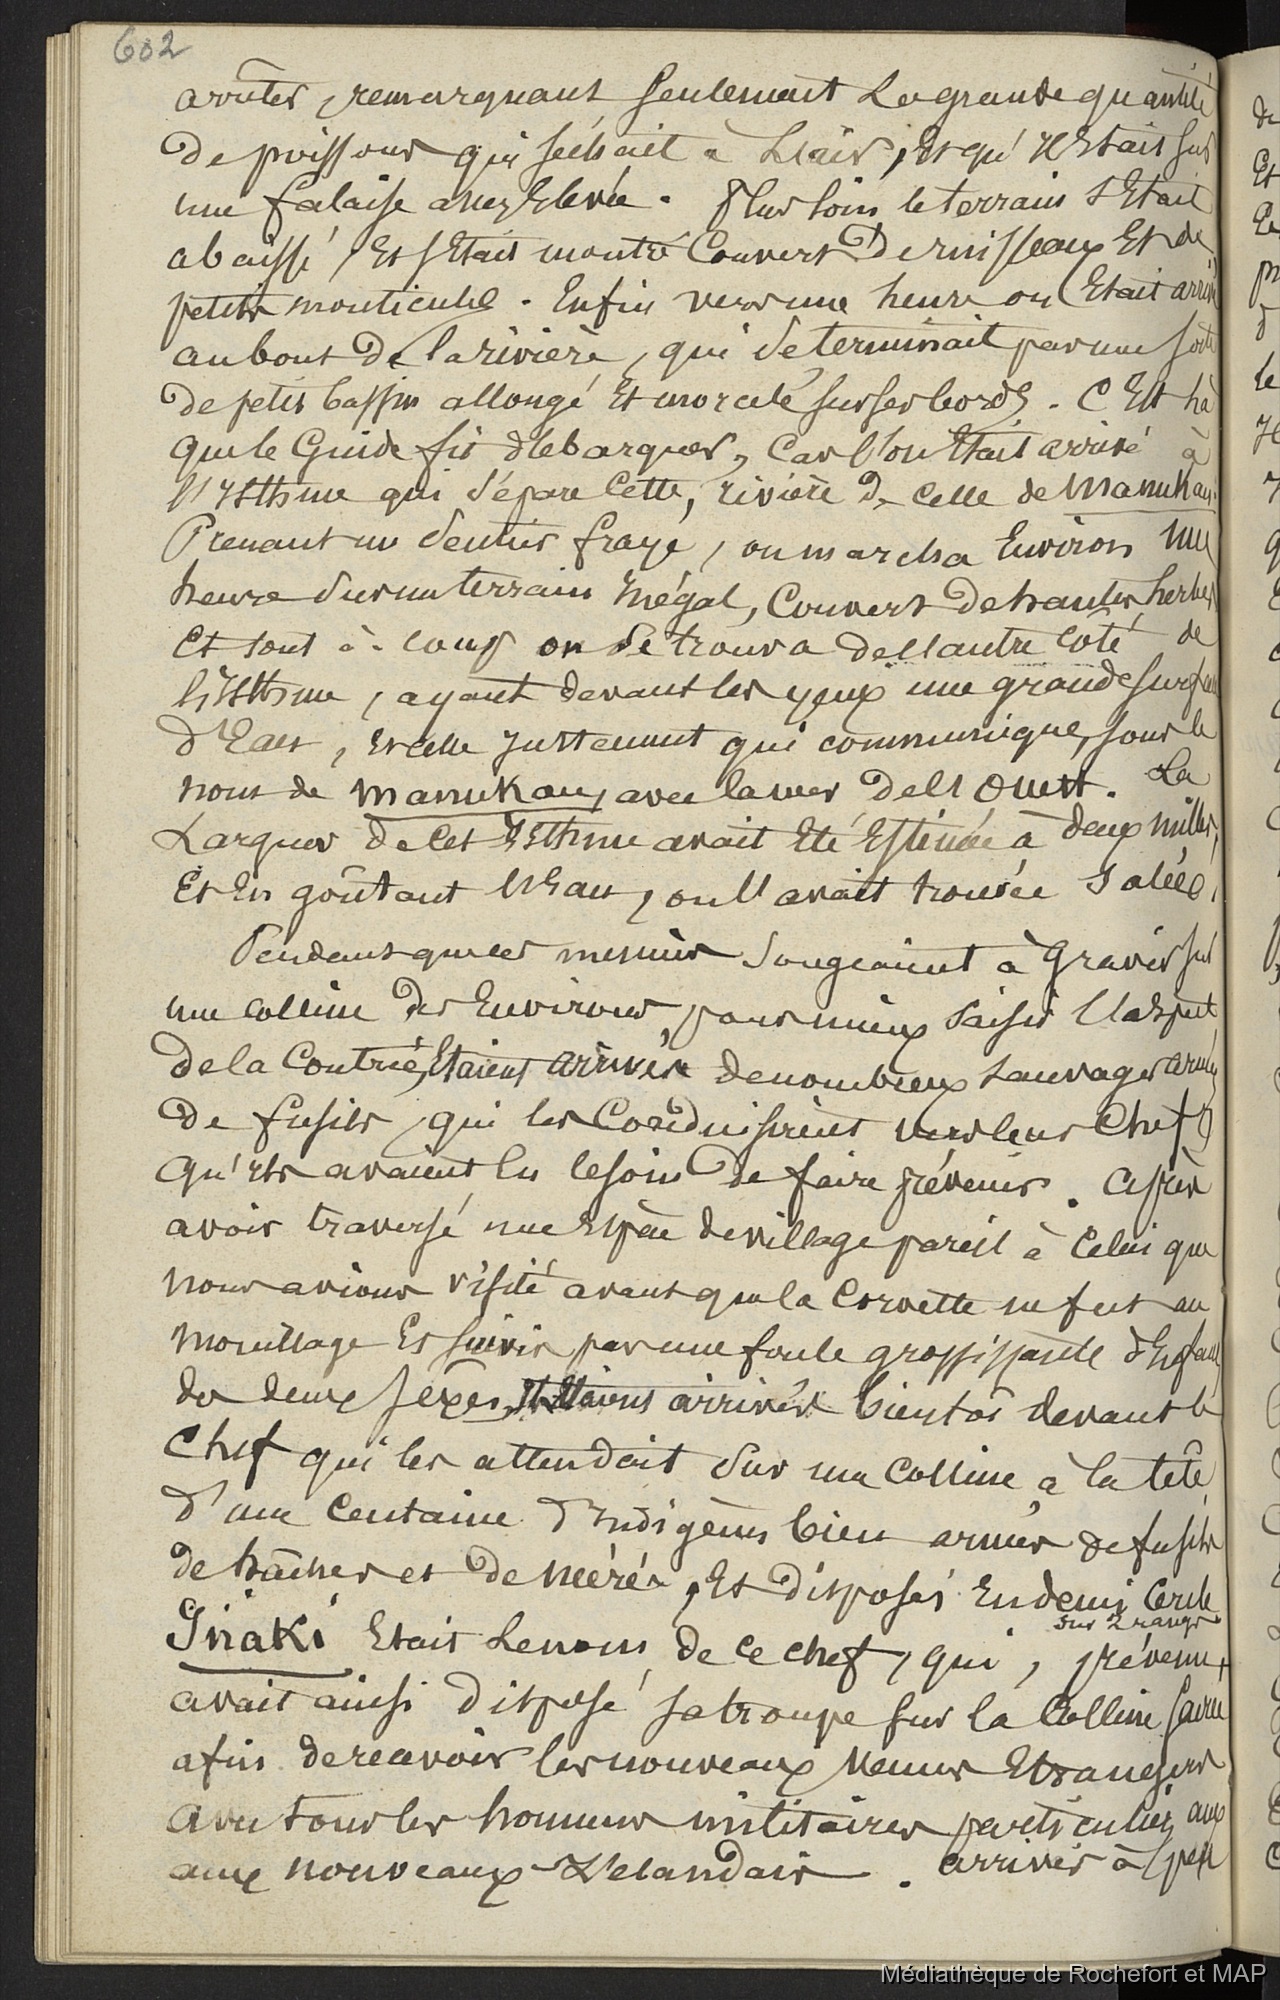 602
arrêter, remarquant seulement La grande quantité
De poissons qui séchait à L'air, Et qu'Il Etait sur
une falaise assez Elevée. Plus loin le terrain s'Etait
abaissé, Et s'Etait montré Couvert De ruisseaux Et de
petits monticules. Enfin vers une heure on Etait arrivé
au bout De la rivière, qui se terminait par une sorte
de petit bassin allongé Et morcelé sur ses bords. C'Est là
que le Guide fit débarquer, Car l'on Etait arrivé à
l'Isthme qui sépare Cette rivière de Celle de Manukau.
Prenant un sentier frayé, on marcha Environ une
heure sur un terrain Inégal, Couvert De hautes herbes
Et tout à coup on se trouva de l'autre côté de
l'Isthme, ayant devant les yeux une grande surface
d'Eau, Et celle justement qui communique, sous le
nom de Manukau, avec la mer de l'Ouest. La
Largeur de Cet Isthme avait Eté Estimée à deux milles,
Et En goûtant l'Eau, on l'avait trouvée salée,
Pendant que ces messieurs songeaient à Gravir sur
une colline des Environs, pour mieux saisir l'aspect
de la Contrée, Etaient arrivés de nombreux sauvages armés
De fusils, qui les Conduisirent vers leur Chef,
qu'Ils avaient Eu besoin De faire prévenir. Après
avoir traversé une Espèce de village pareil à Celui que
nous avions visité avant que la Corvette ne fut au
mouillage Et suivis par une foule grossissante d'Enfants
des deux sexes, Ils Etaient arrivés bientôt devant le
Chef qui les attendait sur une Colline à la tête
d'une Centaine d'Indigènes bien armés de fusils
de hâches et de Mérés, Et disposés En demi Cercle
sur 2 rangs.
Inaki Etait Le nom de ce chef, qui, prévenu,
avait ainsi disposé sa troupe sur la Colline sacrée
afin de recevoir les nouveaux Venus Etrangers
avec tous les honneurs militaires particuliers aux
aux nouveaux-Zélandais. arrivés à peu
Médiathèque de Rochefort et MAP